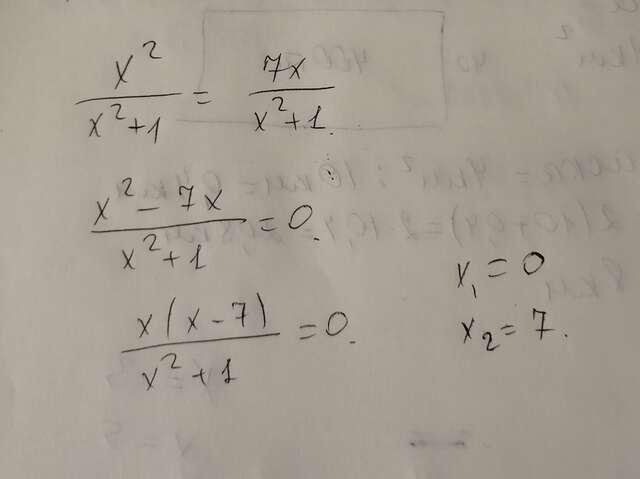 x²/(x²+1) = 7x/(x²+1).
(x² - 7x)/(x²+1) = 0.
x(x - 7)/(x² + 1) = 0.
x₁ = 0
x₂ = 7.